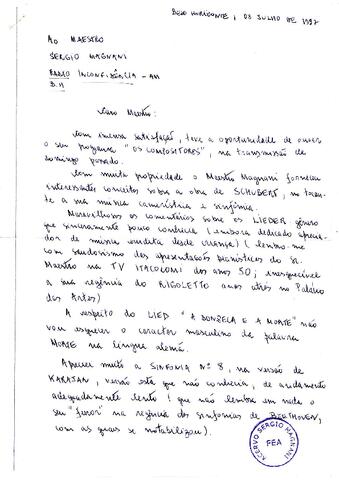 BELO HORIZONTE, 03 JULHO DE 1997
AO MAESTRO
SERGIO MAGNANI
RADIO INCONFIDÊNCIA - AM
B.H
Caro Maestro:
Com imensa satisfação, tive a oportunidade de ouvir
o seu programa "OS COMPOSITORES", na transmissão de
domingo passado.
Com muita propriedade o Maestro Magnani forneceu
interessantes conceitos sobre a obra de SCHUBERT, no tocan-
te a sua musica camerística e sinfônica.
Maravilhosos os comentários sobre os LIEDER, gênero
que sinceramente pouco conhecia (embora dedicado aprecia-
dor de musica erudita desde criança) (lembro-me
com saudosismo das apresentações pianísticas do Sr.
Maestro na TV ITACOLOMI dos anos 50; inesquecível
a sua regência do RIGOLETTO anos atrás no Palácio
das Artes)
A respeito do LIED "A DONZELA E A MORTE" não
vou esquecer o caracter masculino da palavra
MORTE na lingua alemã.
Apreciei muito a SINFONIA Nº 8, na versão de
KARAJAN, versão esta que não conhecia, de andamento
adequadamente lento (que não lembra em nada o
seu "furor" na regência das sinfonias de BEETHOVEN,
com as quais se notabilizou).
ACERVO SERGIO MAGNANI
FEA